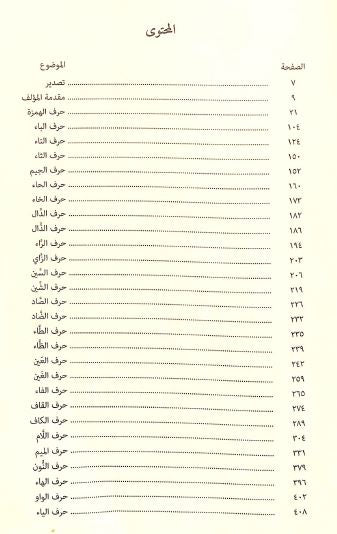 المحتوى
الموضوع الصفحة
تصدير ................ ٧
مقدمة المؤلف ................ ٩
حرف الهمزة ................ ٢١
حرف الباء ................ ١٠٤
حرف التاء ................ ١٢٤
حرف الثاء ................ ١٥٠
حرف الجيم ................ ١٥٢
حرف الحاء ................ ١٦٠
حرف الخاء ................ ١٧٣
حرف الدَّال ................ ١٨٢
حرف الذَّال ................ ١٨٦
حرف الرَّاء ................ ١٩٤
حرف الزَّاي ................ ٢٠٣
حرف السِّين ................ ٢٠٦
حرف الشِّين ................ ٢١٩
حرف الصَّاد ................ ٢٢٦
حرف الضَّاد ................ ٢٣٢
حرف الطَّاء ................ ٢٣٥
حرف الظَّاء ................ ٢٣٩
حرف العَين ................ ٢٤٢
حرف الغَين ................ ٢٥٩
حرف الفاء ................ ٢٦٥
حرف القاف ................ ٢٧٤
حرف الكاف ................ ٢٨٩
حرف اللَّام ................ ٣٠٤
حرف الميم ................ ٣٣١
حرف النُّون ................ ٣٧٩
حرف الهاء ................ ٣٩٦
حرف الواو ................ ٤٠٢
حرف الياء ................ ٤٠٨